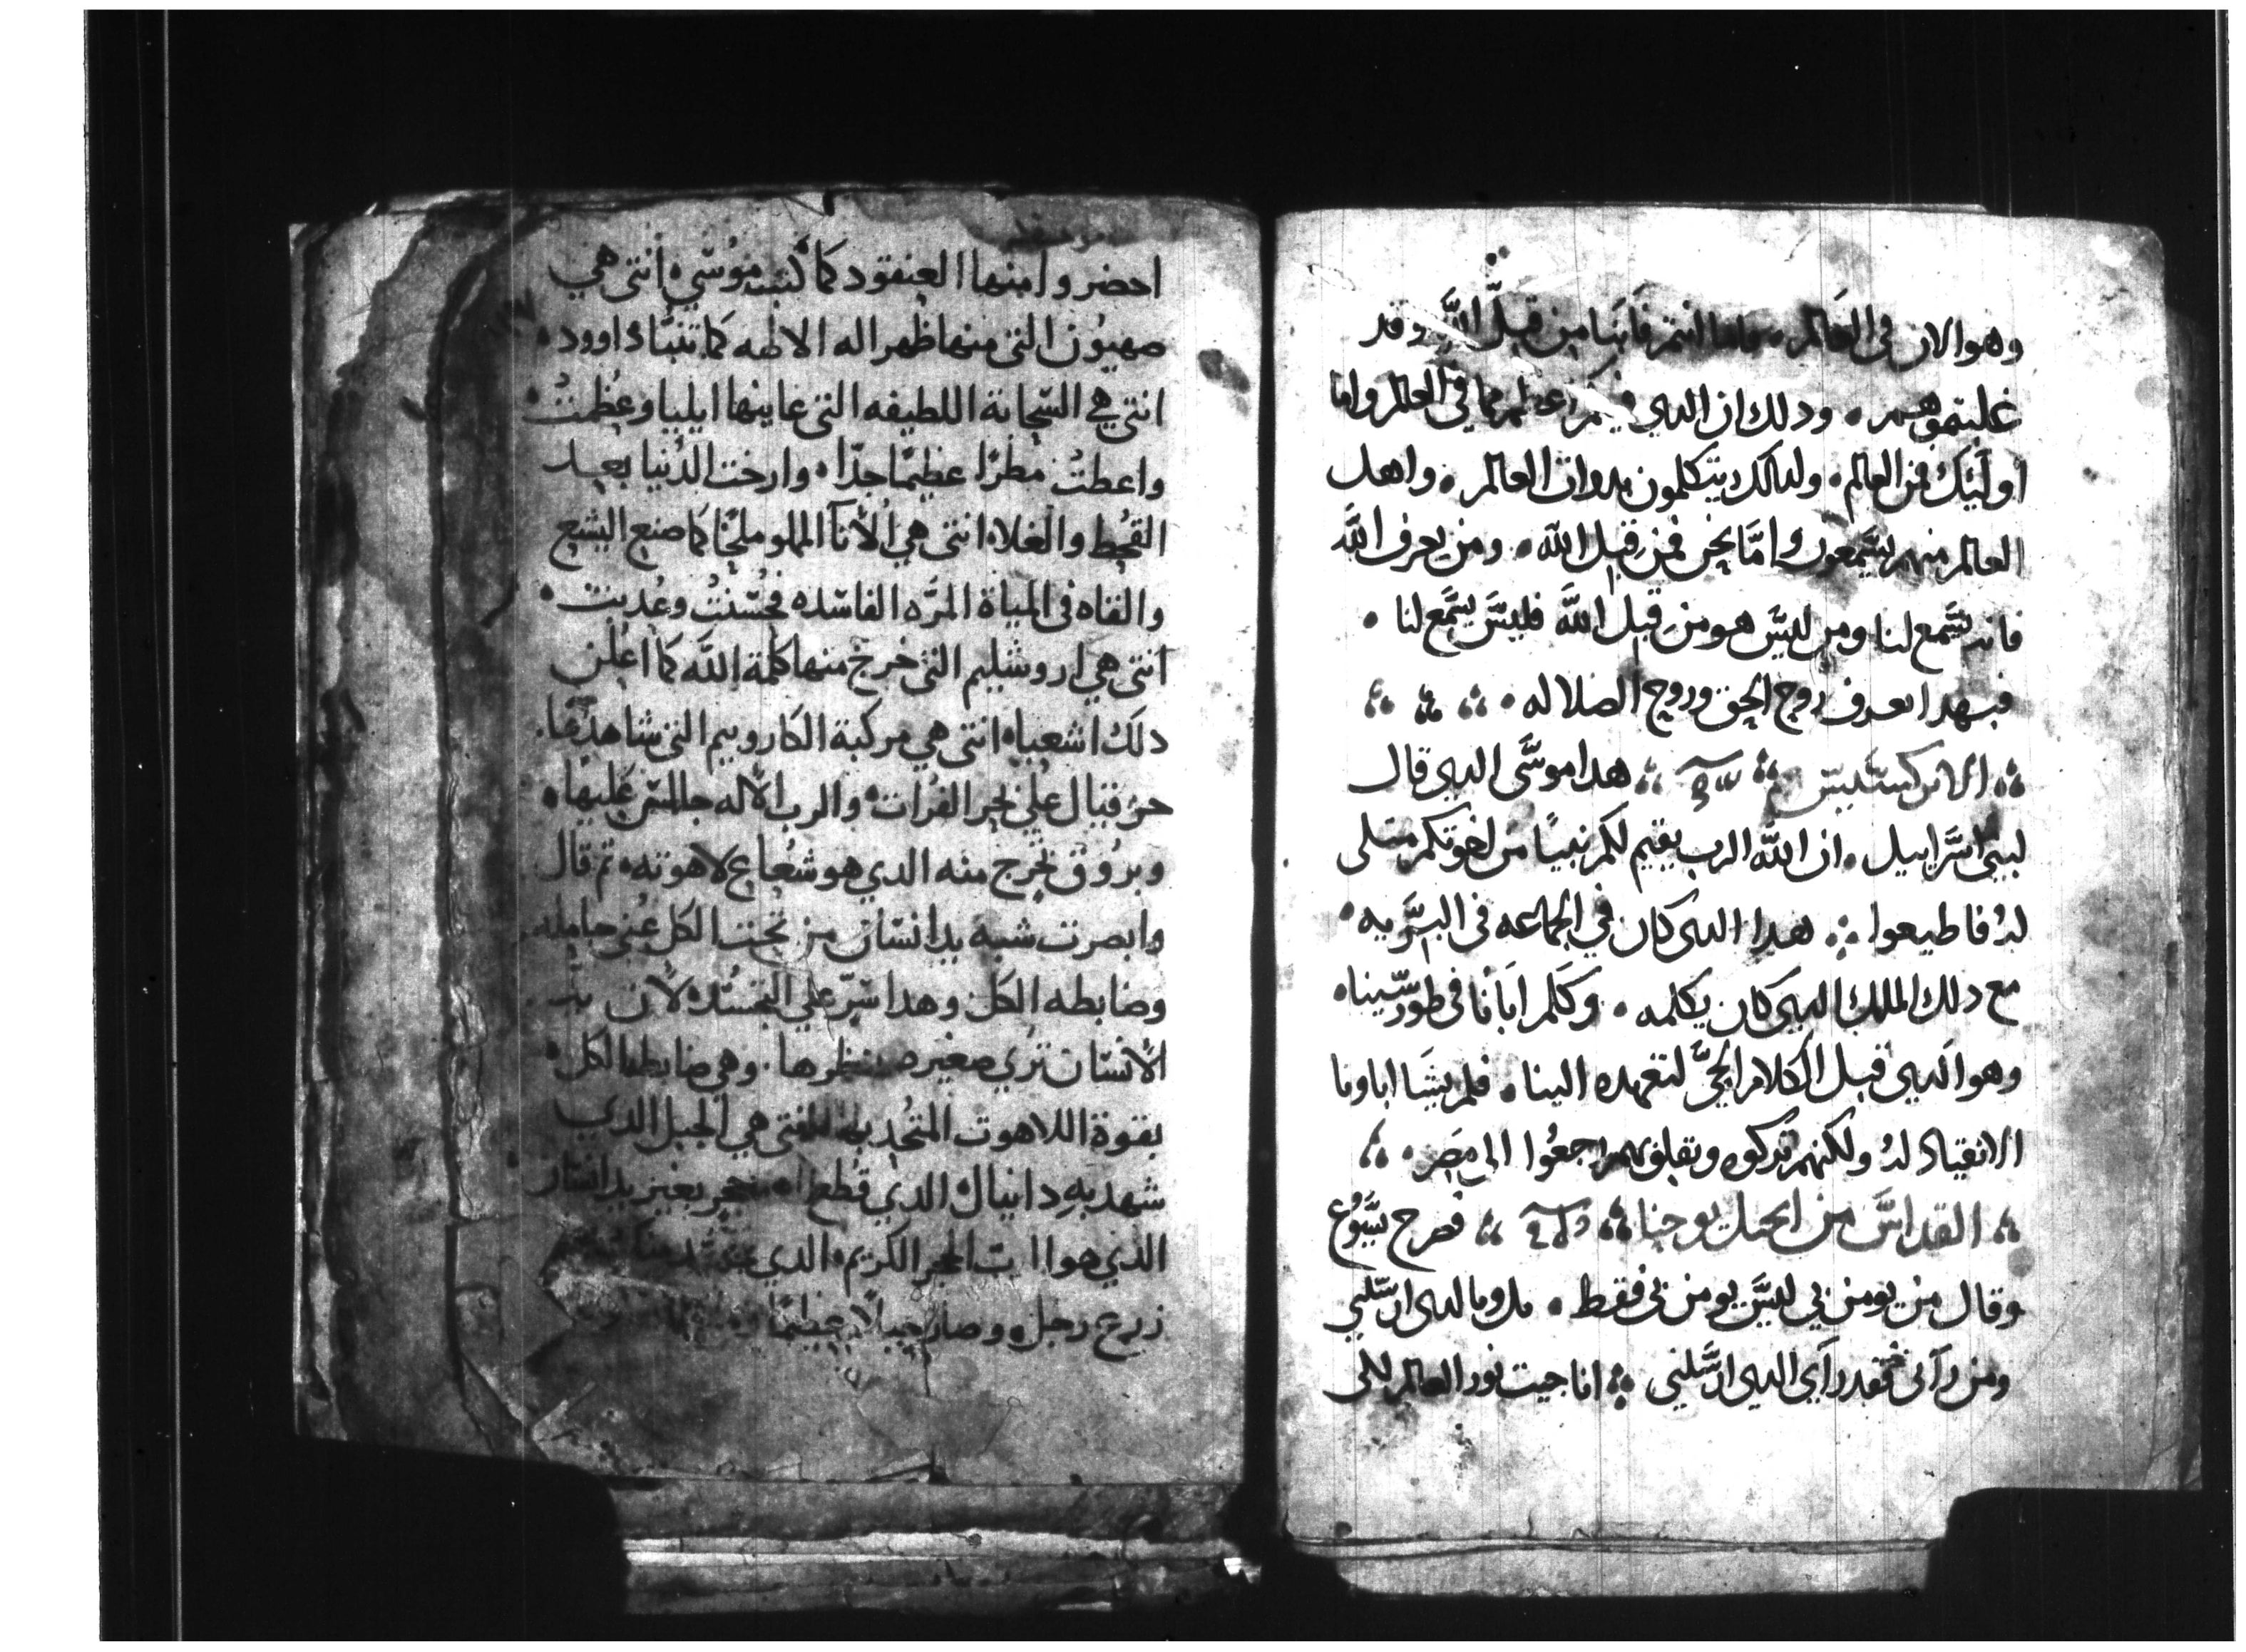 وهوا الان فى العالم ٠ فاما انتم فانبا من قبل الله وقد
غلبتموهم ٠ ودلك ان الدي فيكم اعظم مما في العالم واما
اوليك فمن العالم ٠ ولدالك يتكلمون بدوات العالم ٠ واهل
العالم منهم يسمعون واما نحن فمن قبل الله ٠ ومن يعرف الله
فانه يسمع لنا ومن ليس هو من قبل الله فليس يسمع لنا ٠
فبهدا نعرف روح الحق وروح الضلاله ٠
الابركسيس هدا موسى الدي قال
لبني اسراييل ٠ ان الله الرب يقيم لكم نبيا من اخوتكم متلى
له فاطيعوا هدا الدى كان في الجماعه فى البريه ٠
مع دلك الملاك الدى كان يكلمه ٠ وكلم ابانا فى طور سينا ٠
وهوا الدي قبل الكلام الحي لنعهده الينا ٠ فلم يشا اباونا
الانقياد له ولكنهم تركوه وبقلوبهم راجعوا الى مصر ٠
القداس من انجيل يوحنا فصرح يسوع
وقال من يومن بي ليس يومن بى فقط ٠ بل وبالدى ارسلني
ومن رآنى فقد رآي الدي ارسلني انا جيت نور العالم لكى
احضروا منها العنقود كما كتب موسي ٠ انتى هي
صهيون التى منها ظهر اله الالهه كما تنبا داوود ٠
انتي هي السحابة اللطيفه التى عاينها ايليا وعظمت ٠
واعطت مطرا عظيما جدا ٠ وارخت الدنيا بعد
القحط والغلا ٠ انتى هي الانا المملو ملحا كما صنع اليشع
والقاه فى المياة المره الفاسده فحسنت وعدبت ٠
انتى هي اروشليم التى خرج منها كلمة الله كما اعلن
دلك اشعيا ٠ انتى هي مركبة الكاروبيم التى شاهدها ٠
حزقيال علي نهر الفرات ٠ والرب الاله جالس عليها ٠
وبروق تخرج منه الدي هو شعاع لاهوته ٠ تم قال
وابصرت شبه يد انسان من تحت الكل عني حامله
وضابطه الكل وهدا سر علي التجسد ٠ لان يد
الانسان تري صغير منظرها ٠ وهي ضابطه الكل ٠
بقوة اللاهوت المتحد به ٠ انتى هي الجبل الدي
شهد به دانيال الدي قطع منه حجر بغير يد انسان
الذي هوا الحجر الكريم ٠ الدي
زرع رجل ٠ وصار جبلا عظيما